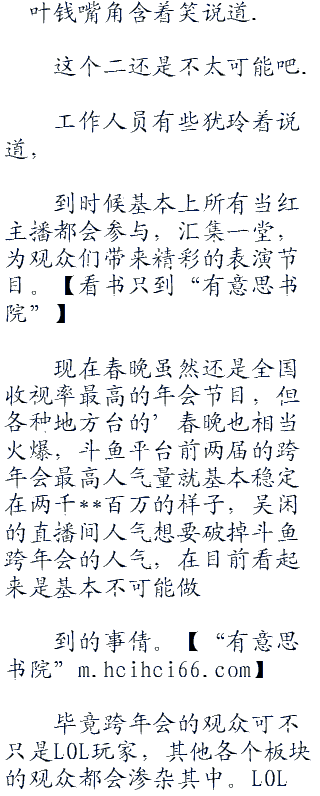 叶钱嘴角含着笑说道.
这个二还是不太可能吧.
工作人员有些犹玲着说
道,
到时候基本上所有当红
主播都会参与，汇集一堂，
为观众们带来精彩的表演节
目。【看书只到“有意思书
院”】
现在春晚虽然还是全国
收视率最高的年会节目，但
各种地方台的’春晚也相当
火爆，斗鱼平台前两届的跨
年会最高人气量就基本稳定
在两千**百万的样子，吴闲
的直播间人气想要破掉斗鱼
跨年会的人气，在目前看起
来是基本不可能做
到的事情。【“有意思
书院”m.hcihci66.com】
毕竟跨年会的观众可不
只是LOL玩家，其他各个板块
的观众都会渗杂其中。LOL